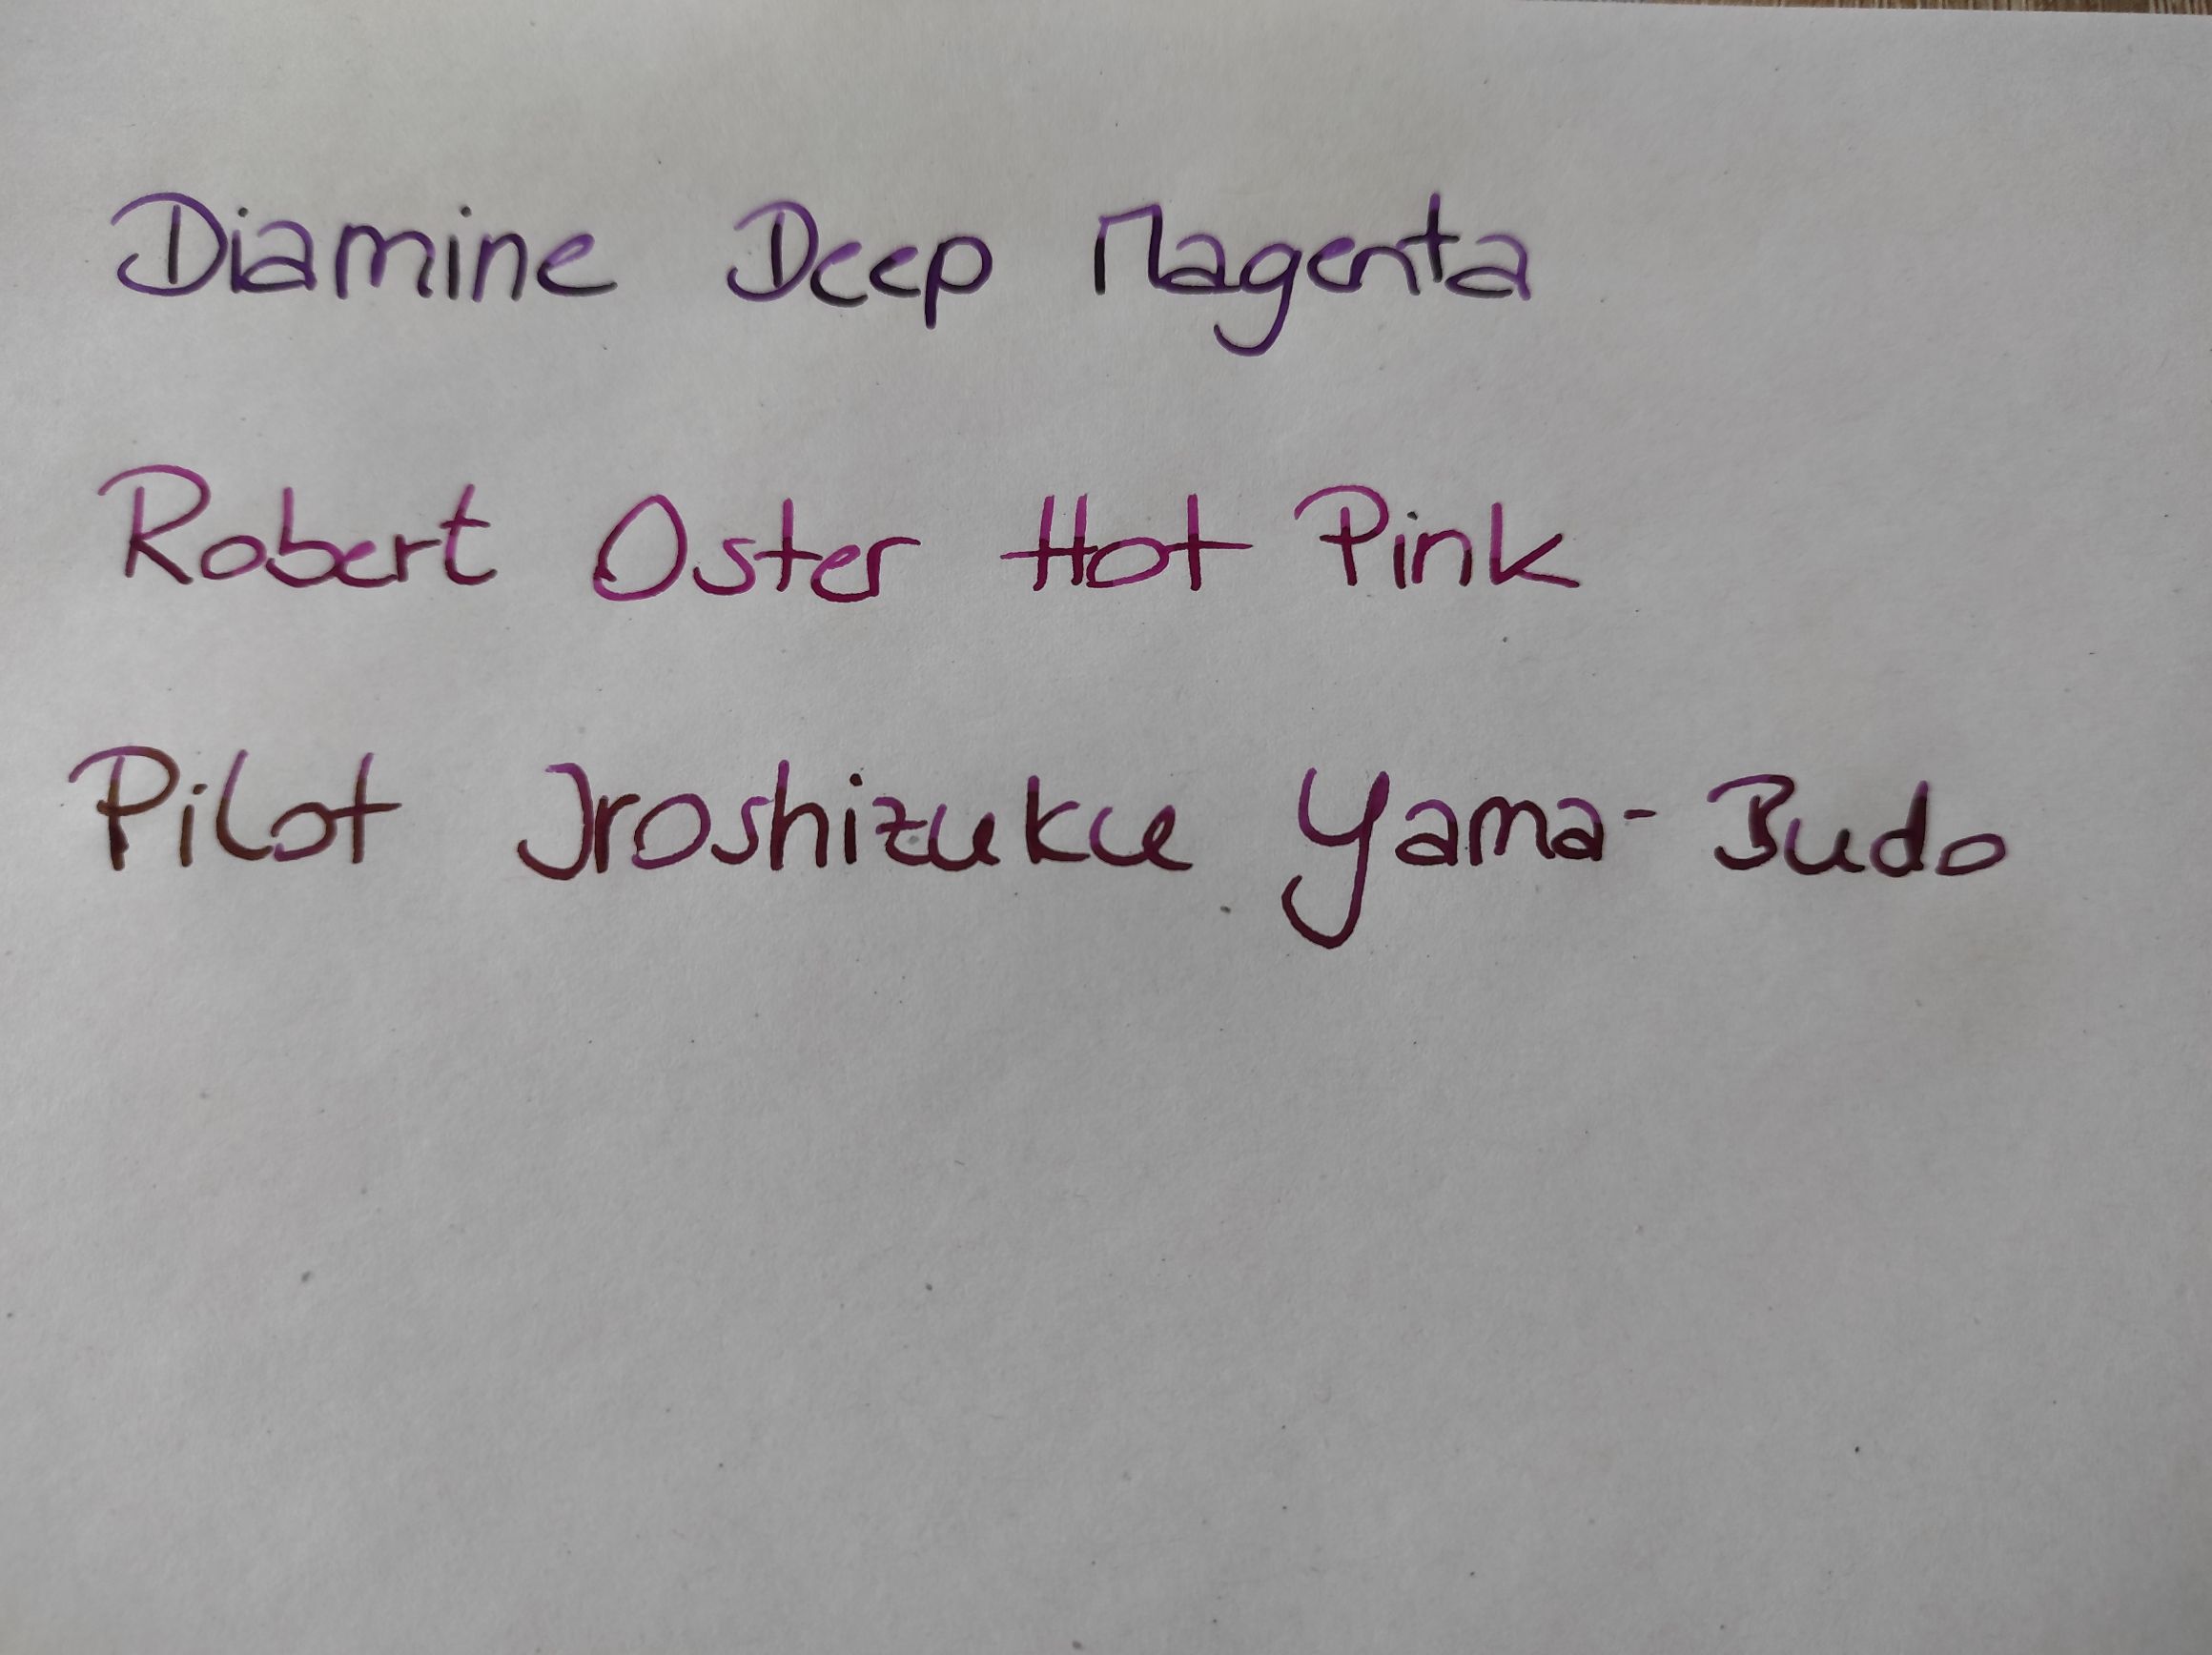 Diamine Deep Magenta
Robert Oster Hot Pink
Pilot Iroshizuku Yama-Budo